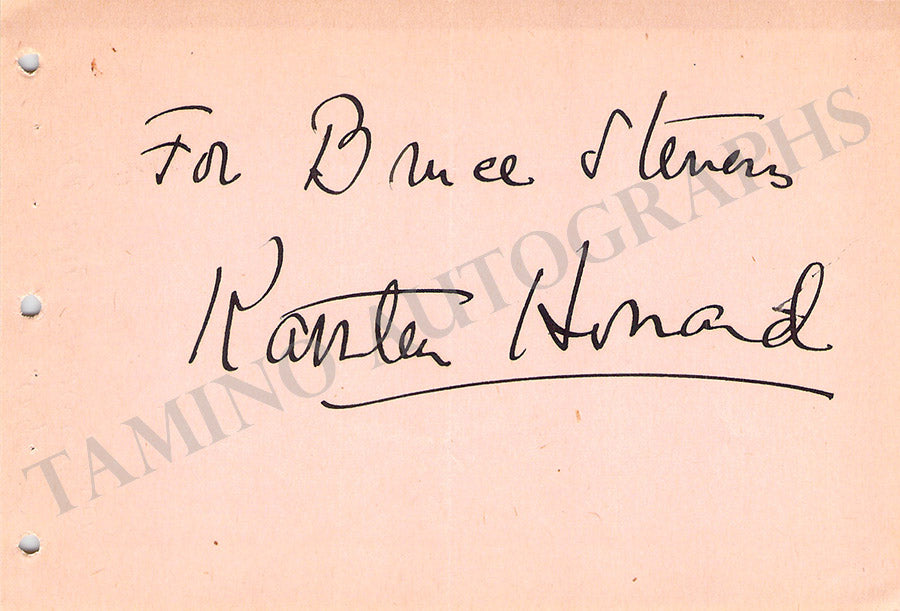 For Bruce Stevens
Karsten Howard
TAMINO AUTOGRAPHS